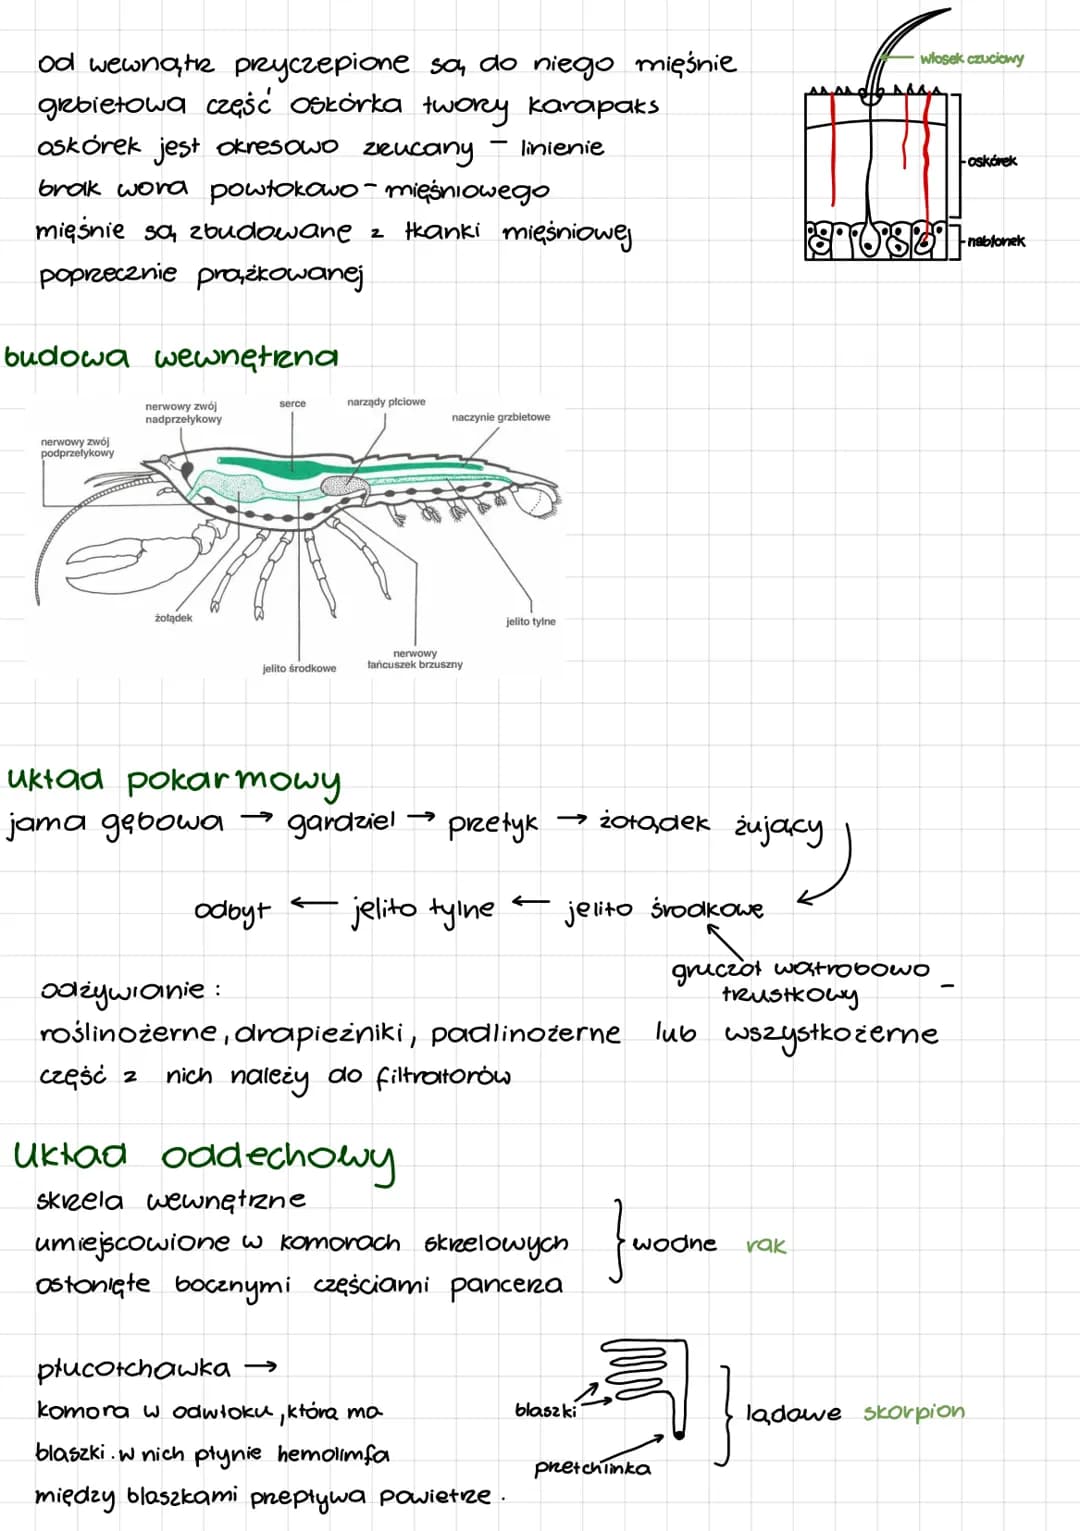 od wewnątrz przyczepione są do niego mięśnie
grzbietowa część oskórka tworzy karapaks
oskórek jest okresowo zrzucany - linienie
brak wora powłokowo-mięśniowego
mięśnie są zbudowane z tkanki mięśniowej
poprzecznie prążkowanej
włosek czuciowy
oskórek
nabłonek
budowa wewnętrzna
nerwowy zwój
nadprzełykowy
serce
narządy płciowe
naczynie grzbietowe
nerwowy zwój
podprzełykowy
żołądek
jelito tylne
nerwowy
łańcuszek brzuszny
jelito środkowe
układ pokarmowy
jama gębowa → gardziel → przełyk → żołądek żujący
odbyt ← jelito tylne ← jelito środkowe
gruczoł wątrobowo -
trzustkowy
odżywianie :
roślinożerne, drapieżniki, padlinożerne lub wszystkożerne
część z nich należy do filtratorów
Układ oddechowy
skrzela wewnętrzne
umiejscowione w komorach skrzelowych
osłonięte bocznymi częściami pancerza
wodne rak
płucotchawka →
komora w odwłoku, która ma
blaszki. w nich płynie hemolimfa
między blaszkami przepływa powietrze.
blaszki
przetchlinka
lądowe skorpion